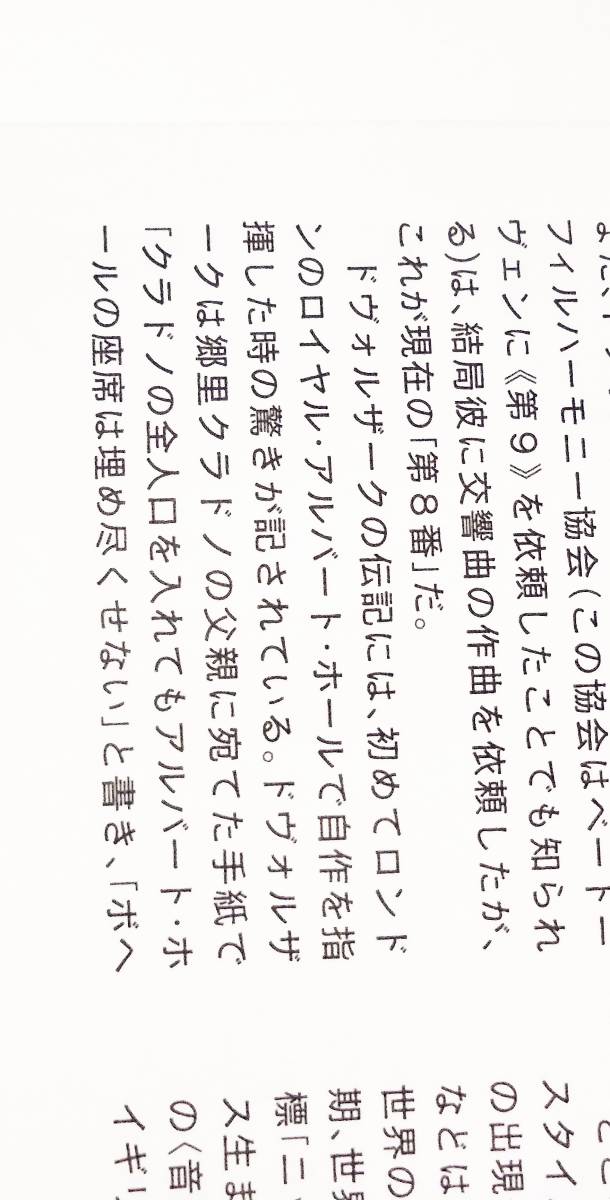 フィルハーモニー協会(この協会はベートー
ヴェンに《第9》を依頼したことでも知られ
る)は、結局彼に交響曲の作曲を依頼したが、
これが現在の「第8番」だ。
ドヴォルザークの伝記には、初めてロンド
ンのロイヤル・アルバート・ホールで自作を指
揮した時の驚きが記されている。ドヴォルザ
ークは郷里クラドノの父親に宛てた手紙で
「クラドノの全人口を入れてもアルバート・ホ
ールの座席は埋め尽くせない」と書き、「ボヘ
スタイ
の出現
などは
世界の
期、世界
標「ニッ
ス生ま
の〈音
イギリ